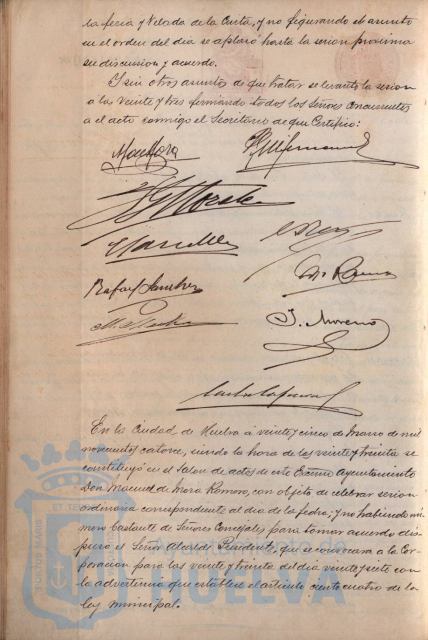 la feria y Velada de la Cinta, y no figurando el asunto
en el orden del día se aplazó hasta la sesión próxima
su discusion y acuerdo.
Y sin otros asuntos de que tratar se levantó la sesion
a las veinte y tres firmando todos los Señores Concurrentes
a el acto conmigo el Secretario de que Certifico:
Rafael Sanchez
J. Moreno
En la Ciudad de Huelva á veinte y cinco de Marzo de mil
novecientos catorce, siendo la hora de las veinte y treinta se
constituyó en el Salon de actos de este Excmo Ayuntamiento
Don Manuel de Mora Romero, con objeto de celebrar sesion
ordinaria correspondiente al dia de la fecha; y no habiendo nú-
mero bastante de Señores Concejales para tomar acuerdo dis-
puso el Señor Alcalde Presidente, que se convocara a la Cor-
poracion para las veinte y treinta del dia veinte y siete con
la advertencia que establece el artículo ciento cuatro de la
Ley municipal.
HUELVA